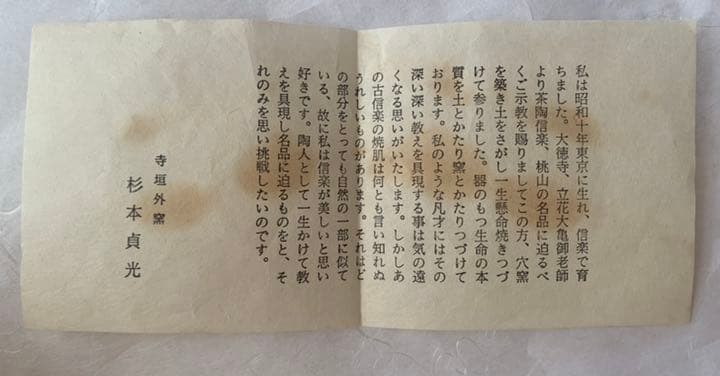 私は昭和十年東京に生れ、信楽で育
ちました。大徳寺、立花大亀御老師
より茶陶信楽、桃山の名品に迫るべ
くご示教を賜りましてこの方、穴窯
を築き土をさがし一生懸命焼きつづ
けて参りました。器のもつ生命の本
質を土とかたり窯とかたりつづけて
おります。私のような凡才にはその
深い深い教えを具現する事は気の遠
くなる思いがいたします。しかしあ
の古信楽の焼肌は何とも言い知れぬ
うれしいものがあります。それはど
の部分をとっても自然の一部に似て
いる、故に私は信楽が美しいと思い
好きです。陶人として一生かけて教
えを具現し名品に迫るものをと、そ
れのみを思い挑戦したいのです。
寺垣外窯
杉本貞光